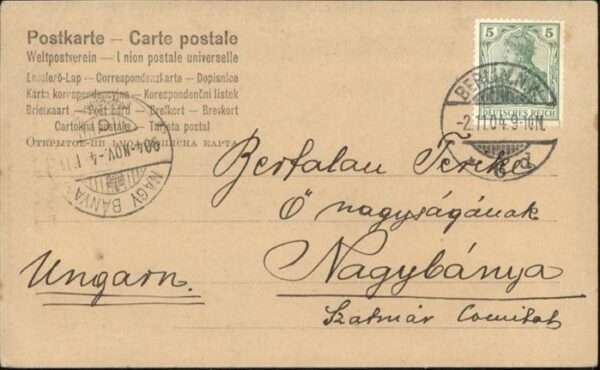 Postkarte — Carte postale
Weltpostverein — Union postale universelle
Levelező-Lap — Correspondenzkarte — Dopisnice
Karta korrespondencyjna — Korespondenční listek
Briefkaart — Post card — Brefkort — Brevkort
Cartolina postale — Tarjeta postal
5 5
DEUTSCHES REICH
BERLIN, N.W.
-2.11.04.9-10N.
904.NOV.-4.
NAGY BÁNYA
Bertalan Terike
Ő nagyságának
Nagybánya
Szatmár Comitat
Ungarn.